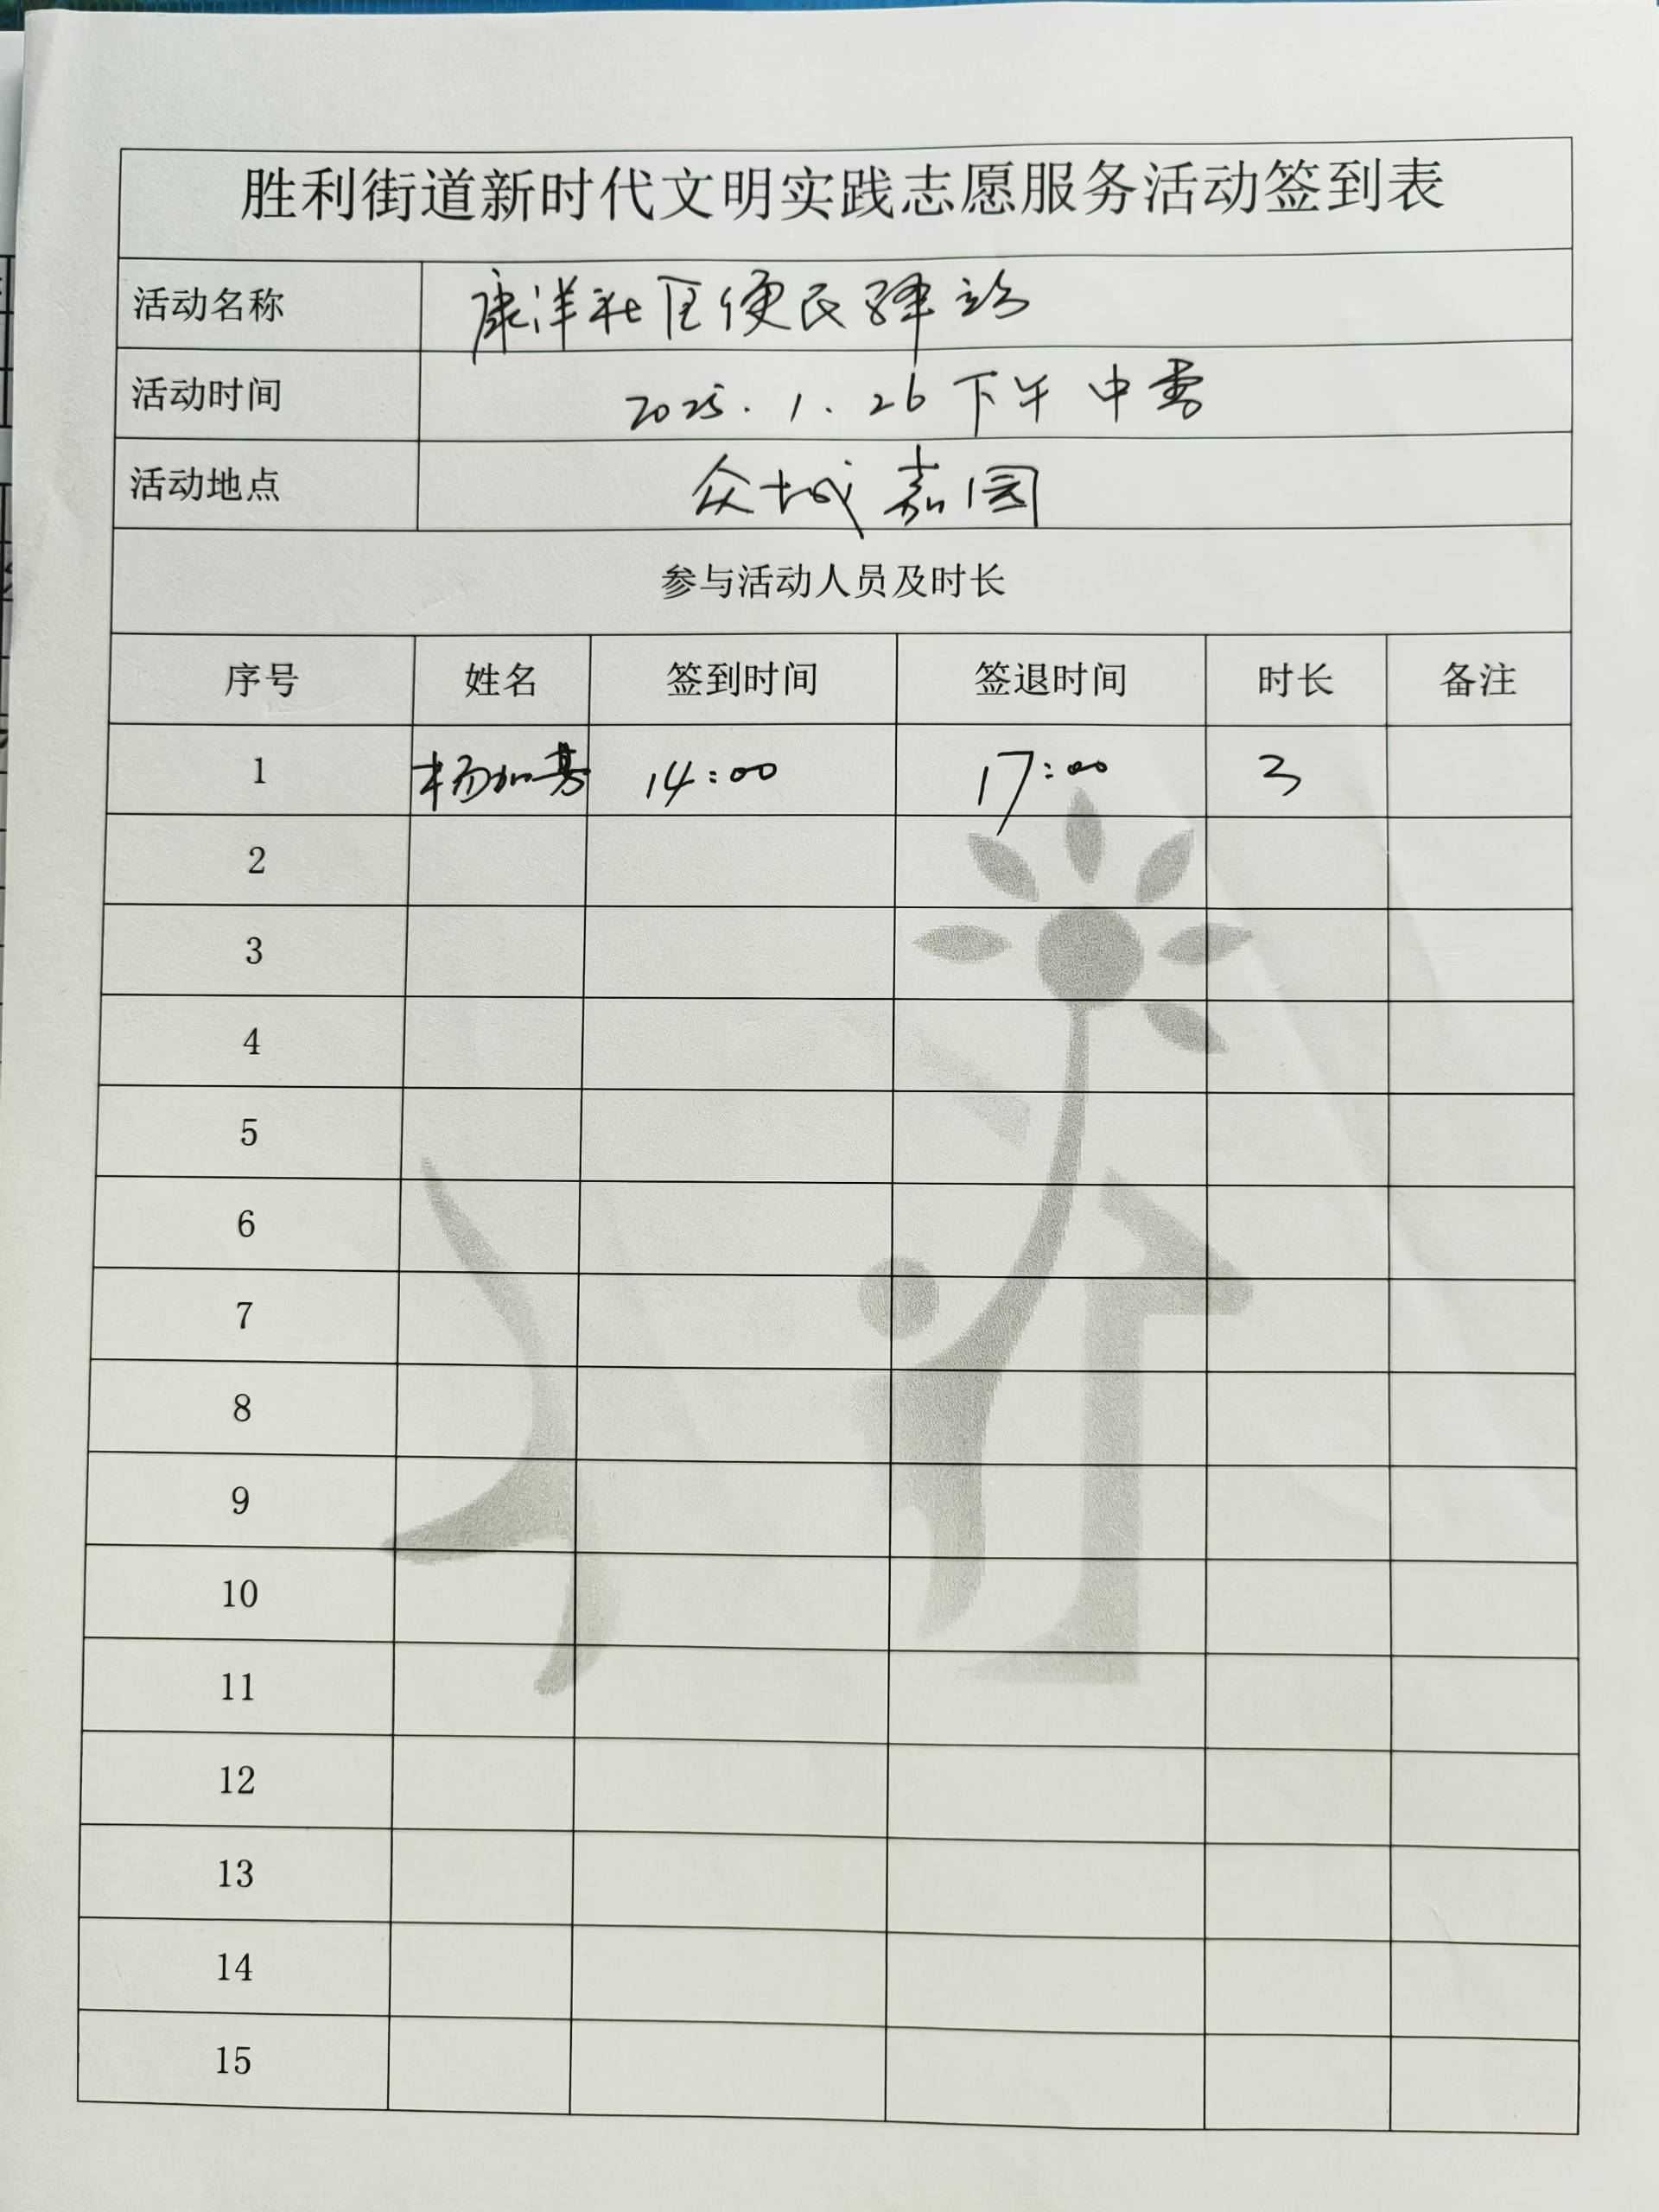 胜利街道新时代文明实践志愿服务活动签到表
活动名称 康洋社区便民驿站
活动时间 2025.1.26 下午
活动地点 众城嘉园
参与活动人员及时长
序号 姓名 签到时间 签退时间 时长 备注
1 14:00 17:00 3
2
3
4
5
6
7
8
9
10
11
12
13
14
15